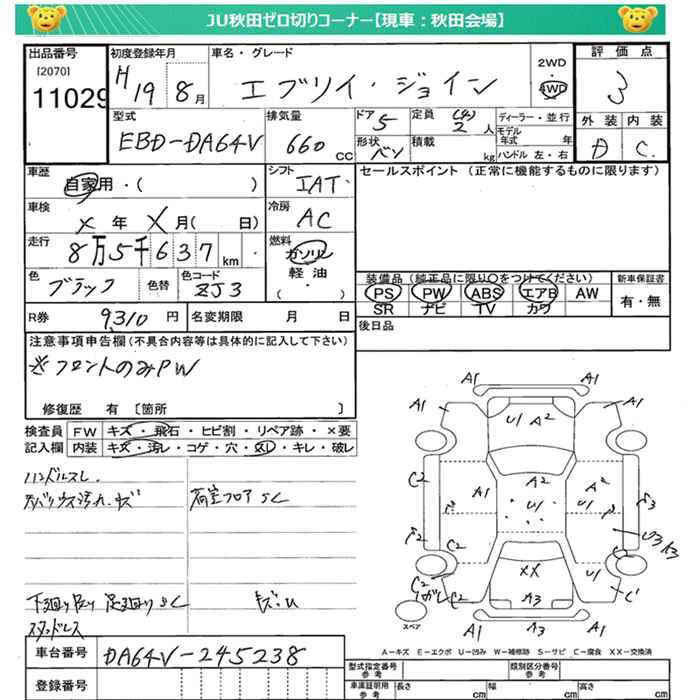 JU秋田ゼロ切りコーナー【現車：秋田会場】
出品番号 初度登録年月 車名・グレード 2WD 4WD 評価点
[2070] 11029 H19 8月 エブリイ・ジョイン 3
型式 排気量 ドア 定員 ディーラー・並行 外装 内装
EBD-DA64V 660 CC 5 (4) 2人 モデル年式 年 D C
形状 バン 積載 kg ハンドル 左・右
車歴 シフト セールスポイント（正常に機能するものに限ります）
自家用・( ) IAT
車検 冷房
X年X月( 日) AC
走行 燃料
8万5千637km ガソリン 軽油 ( )
色 色替 色コード 装備品（純正品に限り○をつけてください） 新車保証書
ブラック ZJ3 PS PW ABS エアB AW 有・無
SR ナビ TV カワ
R券 9,310円 名変期限 月 日 後日品
注意事項申告欄（不具合内容等は具体的に記入して下さい）
※フロントのみPW
修復歴 有〔箇所 〕
検査員 FW キズ・飛石・ヒビ割・リペア跡・×要
記入欄 内装 キズ・汚レ・コゲ・穴・スレ・キレ・破レ
ハンドルスレ.
荷室フロアSC
下廻りサビ 足廻りSC キズ・U
A1 A1
A1 U1 A2 A1
C2 A1 A2 U1 A2 C2
U3 A3
C2 C2
C2 XX U1 C1
A3
A1 A1
スペア
A－キズ E－エクボ U－凹み W－補修跡 S－サビ C－腐食 XX－交換済
車台番号 DA64V-245238
登録番号
型式指定番号 参考 類別区分番号 参考
車庫証明用 参考 長さ cm 幅 cm 高さ cm